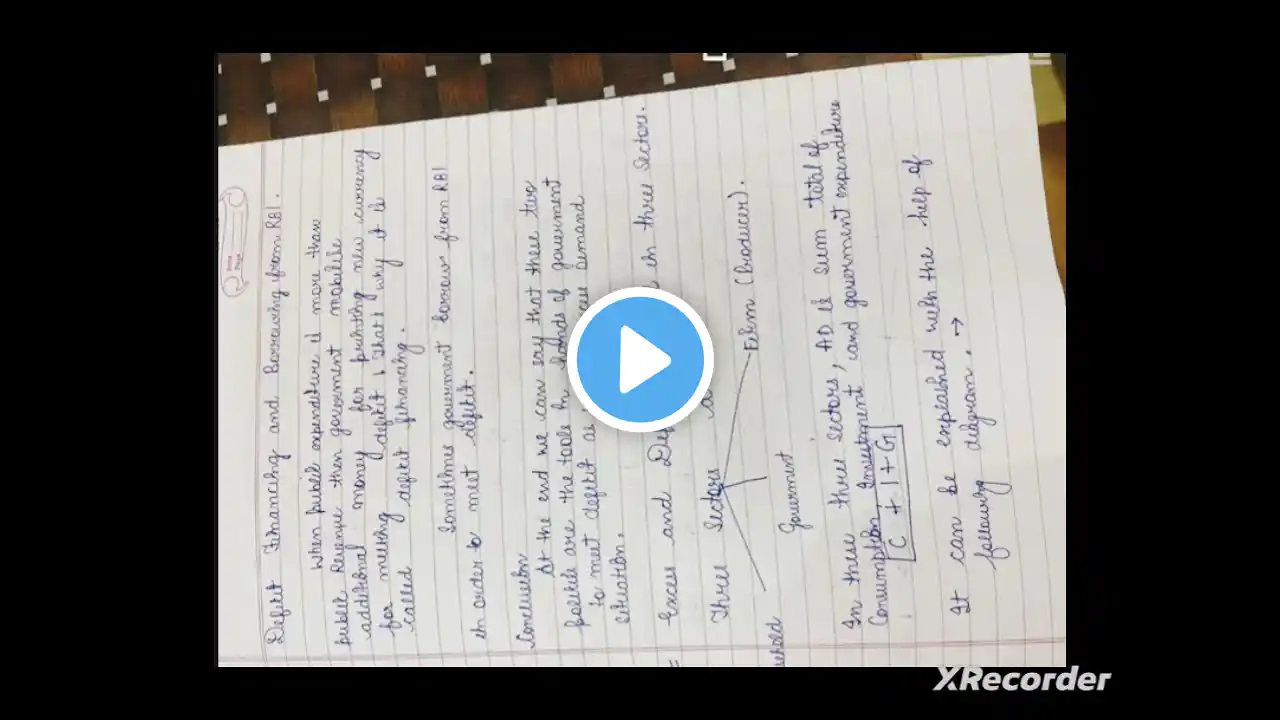 Deficit Financing and Borrowing from RBI.
When public expenditure is more than
public Revenue then goverment mobilise
additional money for printing new currency
for meeting deficit, that's why it is
called deficit financing.
Sometimes goverment borrow from RBI
in order to meet deficit.
Conclusion
At the end we can say that these two
policies are the tools in hands of goverment
to meet deficit as demand
situation.
Excess and in three sectors.
Three Sectors
Firm (Producer).
Goverment
In these three sectors, AD is sum total of
Consumption, Investment and goverment expenditure
C + I + G
It can be explained with the help of
following diagram. →
XRecorder